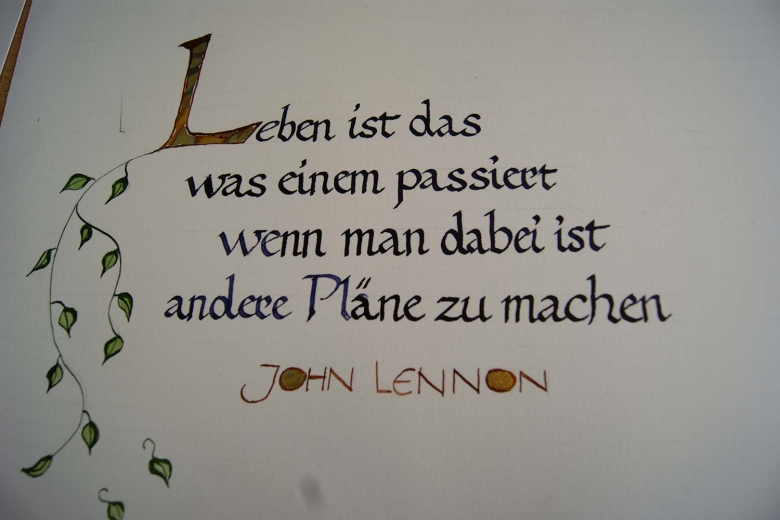 Leben ist das
was einem passiert
wenn man dabei ist
andere Pläne zu machen
JOHN LENNON